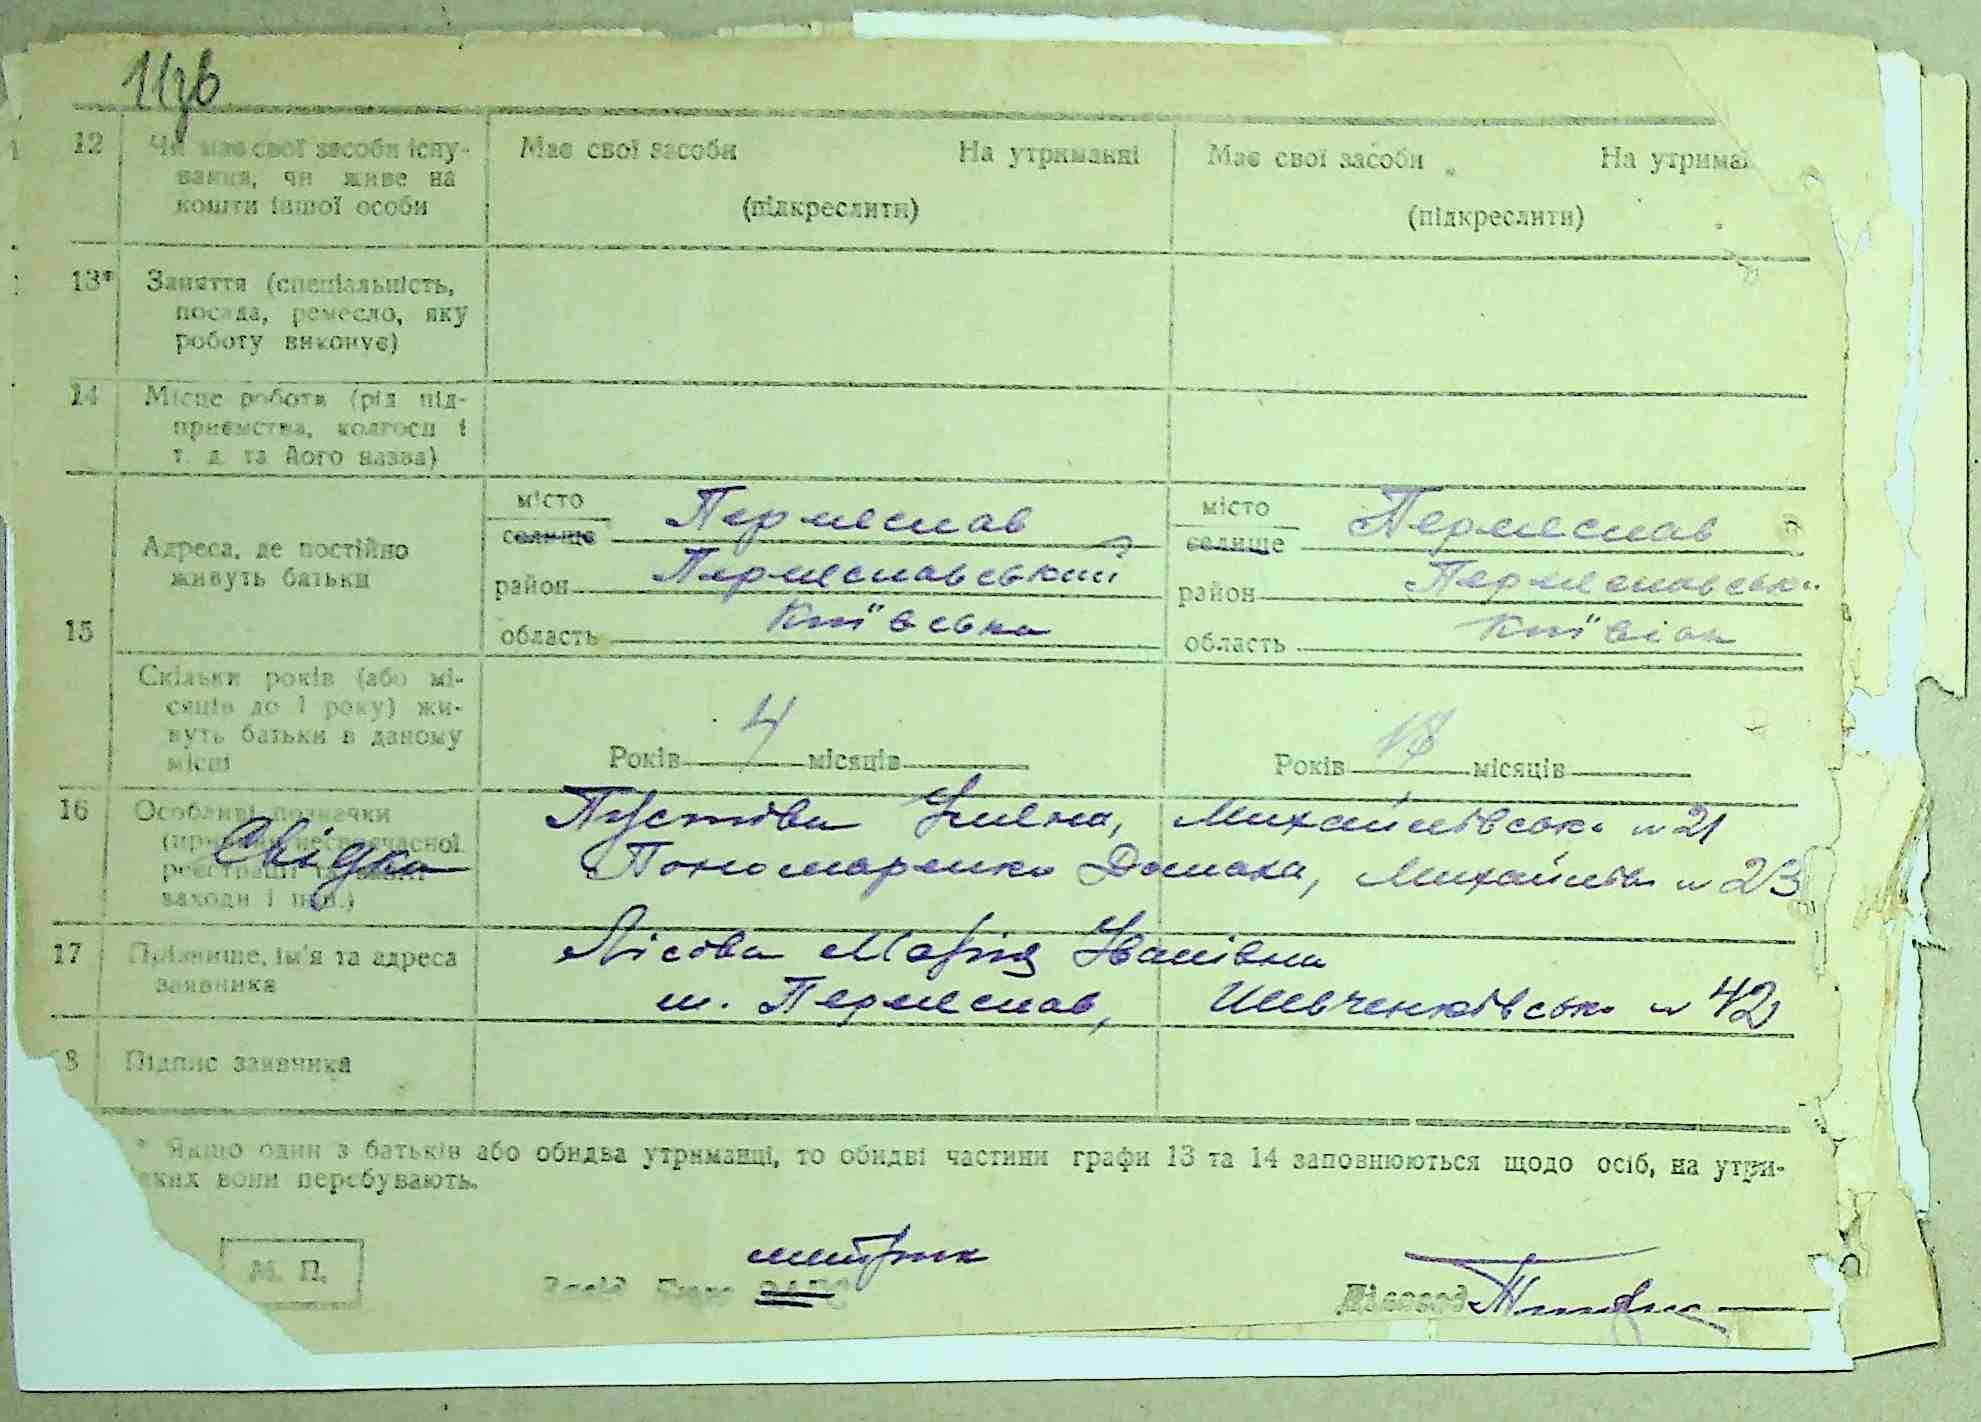 11зв
12 Чи має свої засоби існу-
вання, чи живе на
кошти іншої особи
Має свої засоби На утриманні
(підкреслити)
Має свої засоби На утриман
(підкреслити)
13* Заняття (спеціальність,
посада, ремесло, яку
роботу виконує)
14 Місце роботи (рід під-
приємства, колгосп і
т. д. та його назва)
15 Адреса, де постійно
живуть батьки
місто
селище Переяслав
район Переяславський
область Київська
місто
селище Переяслав
район Переяславськ.
область
Скільки років (або мі-
сяців до 1 року) жи-
вуть батьки в даному
місці
Років 4 місяців
Років 18 місяців
16 Особливі позначки
реєстрації
заходи і інш.)
Свідки
Пустова Уляна, Михайлівськ. № 21
Пономаренко Домаха, Михайлів. № 23
17 Прізвище, ім'я та адреса
заявника
Лісова Марія Іванівна
м. Переяслав, Шевченківськ. № 42
8 Підпис заявника
* Якщо один з батьків або обидва утриманці, то обидві частини графи 13 та 14 заповнюються щодо осіб, на утри-
яких вони перебувають.
М. П.
метрик
Завід. Бюро ЗАГС
Діловод